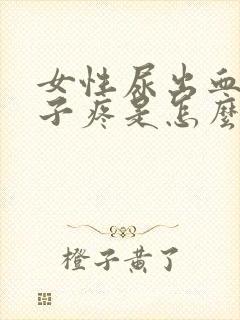 女性尿出血
子疼是怎麼
橙子黄了